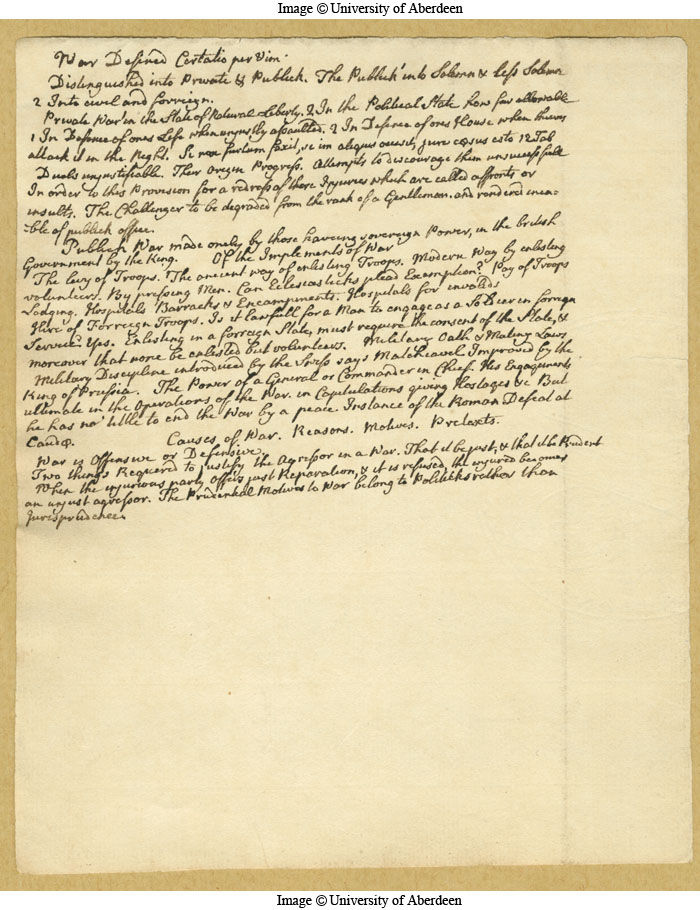 Image © University of Aberdeen
War Defined Certatio per Vim.
Distinguished into Private & Publick. The Publick into Solemn & less Solemn
2 Into civil and forreign.
Private War in the State of Natural Liberty. 2 In the Political State how far allowable
1 In Defence of ones Life when unjustly assaulted. 2 In Defence of ones House when thieves
attack it in the Night. Si nox furtum faxit, si im aliquis occisit, jure caesus esto 12 Tab
Duels unjustifiable. Their Origin Progress. Attempts to discourage them unsuccessfull
In order to this Provision for a redress of those Injuries which are called affronts or
insults. The Challenger to be degraded from the rank of a Gentleman. and rendered inca=
=ble of publick office.
Publick War made onely by those having sovereign Power, in the british
Government by the King. Of the Implements of War
The levy of Troops. The ancient way of enlisting Troops. Modern Way by enlisting
volunteers. By pressing Men. Can Eclesiasticks plead Exemption? Pay of Troops
Lodging. Hospitals Barracks & Encampments. Hospitals for invalids
Hire of Forreign Troops. Is it lawfull for a Man to engage as a Soldier in forreign
Service. Yes. Enlisting in a forreign State, must require the consent of the State, &
moreover that none be enlisted but volunteers. Military Oath & Mutiny Laws
Military Discipline introduced by the Swiss says Machiavel Improved by the
King of Prussia. The Power of a General or Commander in Chief. His Engagements
ultimate in the Operations of the War. in Capitulations giving Hostages &c But
he has no title to end the War by a peace. Instance of the Roman Defeat at
Caudæ. Causes of War. Reasons. Motives. Pretexts.
War is Offensive or Defensive.
Two things Required to justify the Agressor in a War. That it be just, & that it be Prudent
When the injurious party offers just Reparation, & it is refused, the injured becomes
an unjust agressor. The Prudential Motives to War belong to Politicks rather than
Jurisprudence.
Image © University of Aberdeen